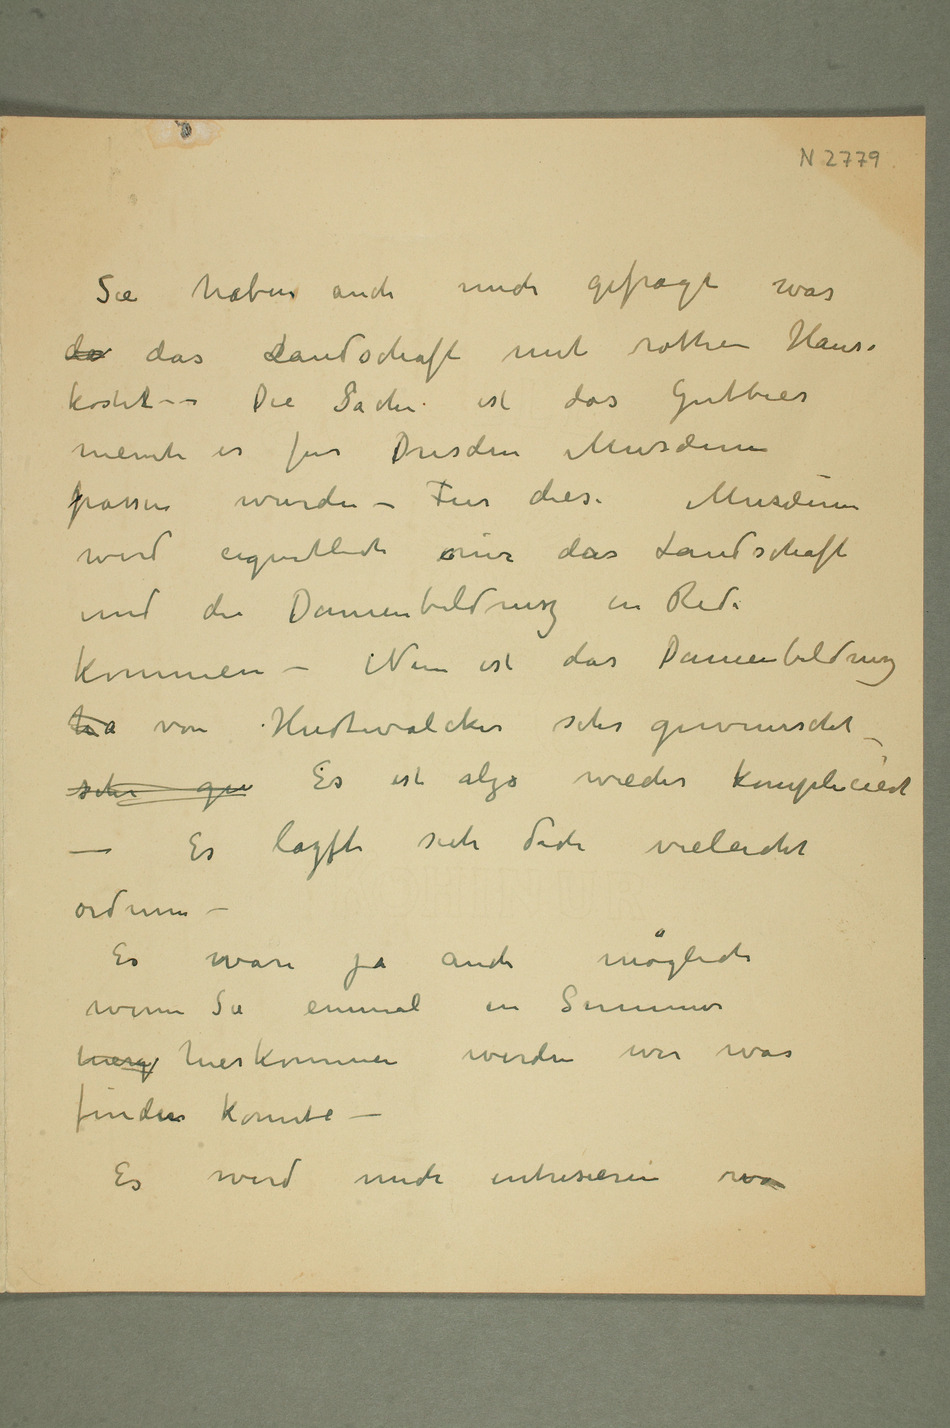 N 2779
Sie haben auch mich gefragt was
da das Landschaft mit rothen Haus
kostet -- Die Sache ist das Gutbier
meinte es für Dresden Musæum
passen wurde – Fur diese Musæum
wird eigentlich nur das Landschaft
und die Damenbildnisz in Rede
kommen – Nun ist das Damenbildnisz
ha von Hudtwalcker sehr gewunscht –
sehr gu Es ist also wieder kompliciert
– Es laszt sich doch vieleicht
ordnen –
Es ware ja auch möglich
wenn Sie einmal in Sommer
hierkommen werden wir was
finden konnte –
Es wird mich intresieren wa